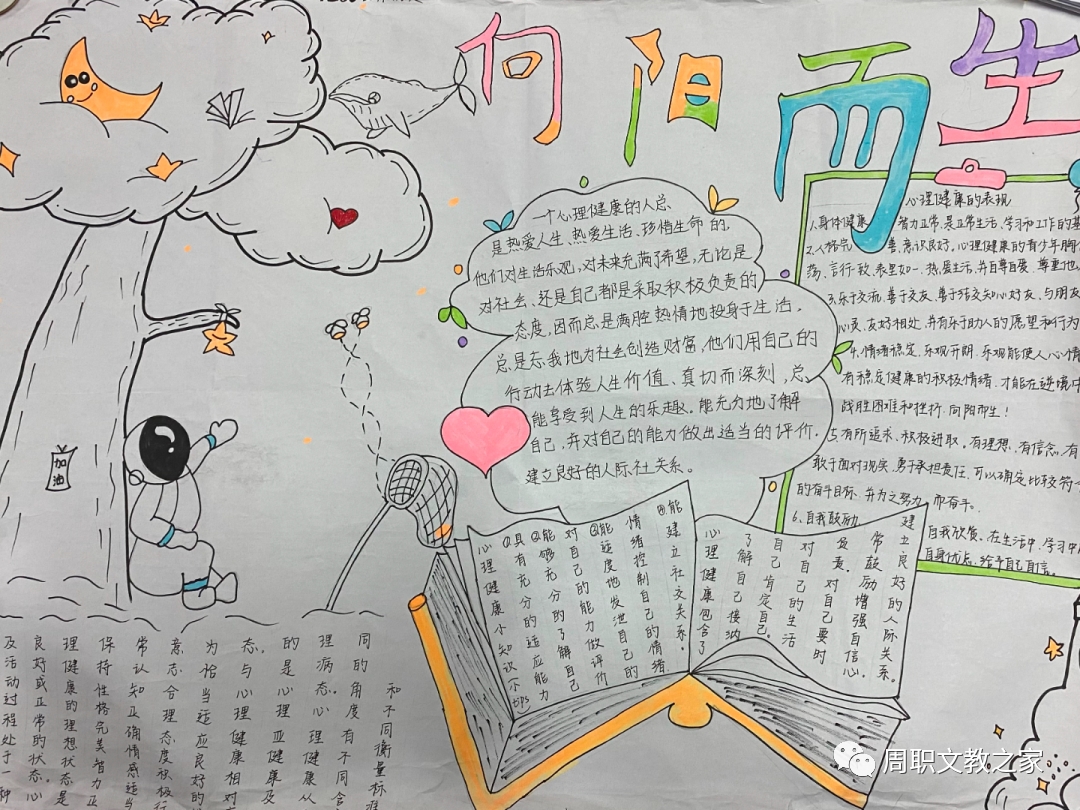 向阳而生
一个心理健康的人总
是热爱人生、热爱生活、珍惜生命的,
他们对生活乐观,对未来充满了希望,无论是
对社会、还是自己都是采取积极负责的
态度,因而总是满腔热情地投身于生活,
总是忘我地为社会创造财富,他们用自己的
行动去体验人生价值、真切而深刻,总
能享受到人生的乐趣。能充分地了解
自己,并对自己的能力做出适当的评价.
建立良好的人际社关系。
心理健康的表现
1.身体健康 智力正常,是正常生活、学习和工作的基
2.人格完 善,意识良好,心理健康的青少年胸怀
荡,言行一致,表里如一,热爱生活,并自尊自爱,尊重他
3.乐于交流,善于交友,善于结交知心好友,与朋友
心灵,友好相处,并有乐于助人的愿望和行为
4.情绪稳定,乐观开朗,乐观能使人心情
有稳定健康的积极情绪,才能在逆境中
战胜困难和挫折,向阳而生!
5.有所追求、积极进取,有理想,有信念,有
敢于面对现实,勇于承担责任,可以确定比较符
的奋斗目标,并为之努力 而奋斗。
6.自我鼓励
自我欣赏,在生活中,学习中
自身优点,给予自己自信。
加油
心理健康小知识小tips
①具有充分的适应能力
②能够充分的了解自己
对自己的能力做评价
③能适度地发泄自己的
情绪控制自己的情绪
④能建立社交关系.
心理健康包含了
了解自己接纳
自己肯定自己.
对自己的生活
负责.对自己要时
常鼓励增强自信心.
建立良好的人际关系。
和不同衡量标准
同的角度有不同含
理病态.心理健康从
的是心理亚健康及
态,与心理健康相对
为恰当适应良好的
意志合理态度积极行
常认知正确情感适当
保持性格完美智力正
理健康的理想状态是
良好或正常的状态.心
及活动过程处于一种
周职文教之家